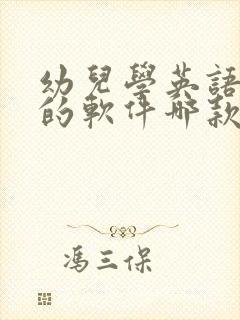 幼兒學英語
的軟件哪款
馮三保